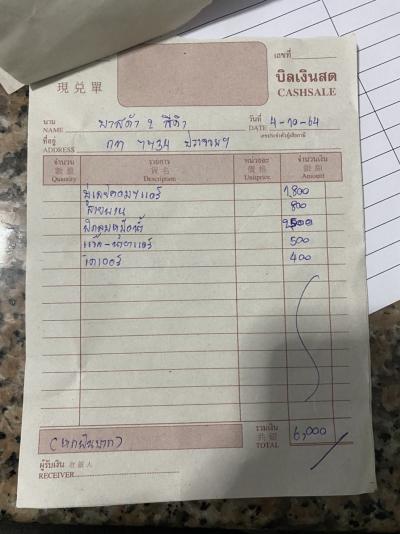 เลขที่
現兌單
บิลเงินสด
CASHSALE
นาม
NAME
มาสด้า 2 สีดำ
วันที่
DATE
4-10-64
เลขประจำตัวผู้เสียภาษี
ที่อยู่
ADDRESS
กท 7434
จำนวน รายการ หน่วยละ จำนวนเงิน
數量 貨名 價格 銀額
Quantity Description Unitprice Amount
มู่เลย์คอมฯแอร์ 1,800
สายพาน 800
2500
แอร์ 500
ไดเออร์ 400
(หกพันบาท)
รวมเงิน
共銀
TOTAL
6,000
ผู้รับเงิน 收銀人
RECEIVER